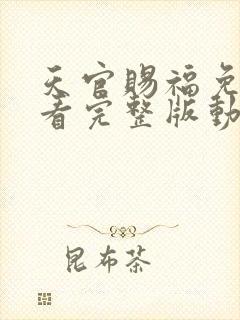 天官賜福免
看完整版動
昆布茶